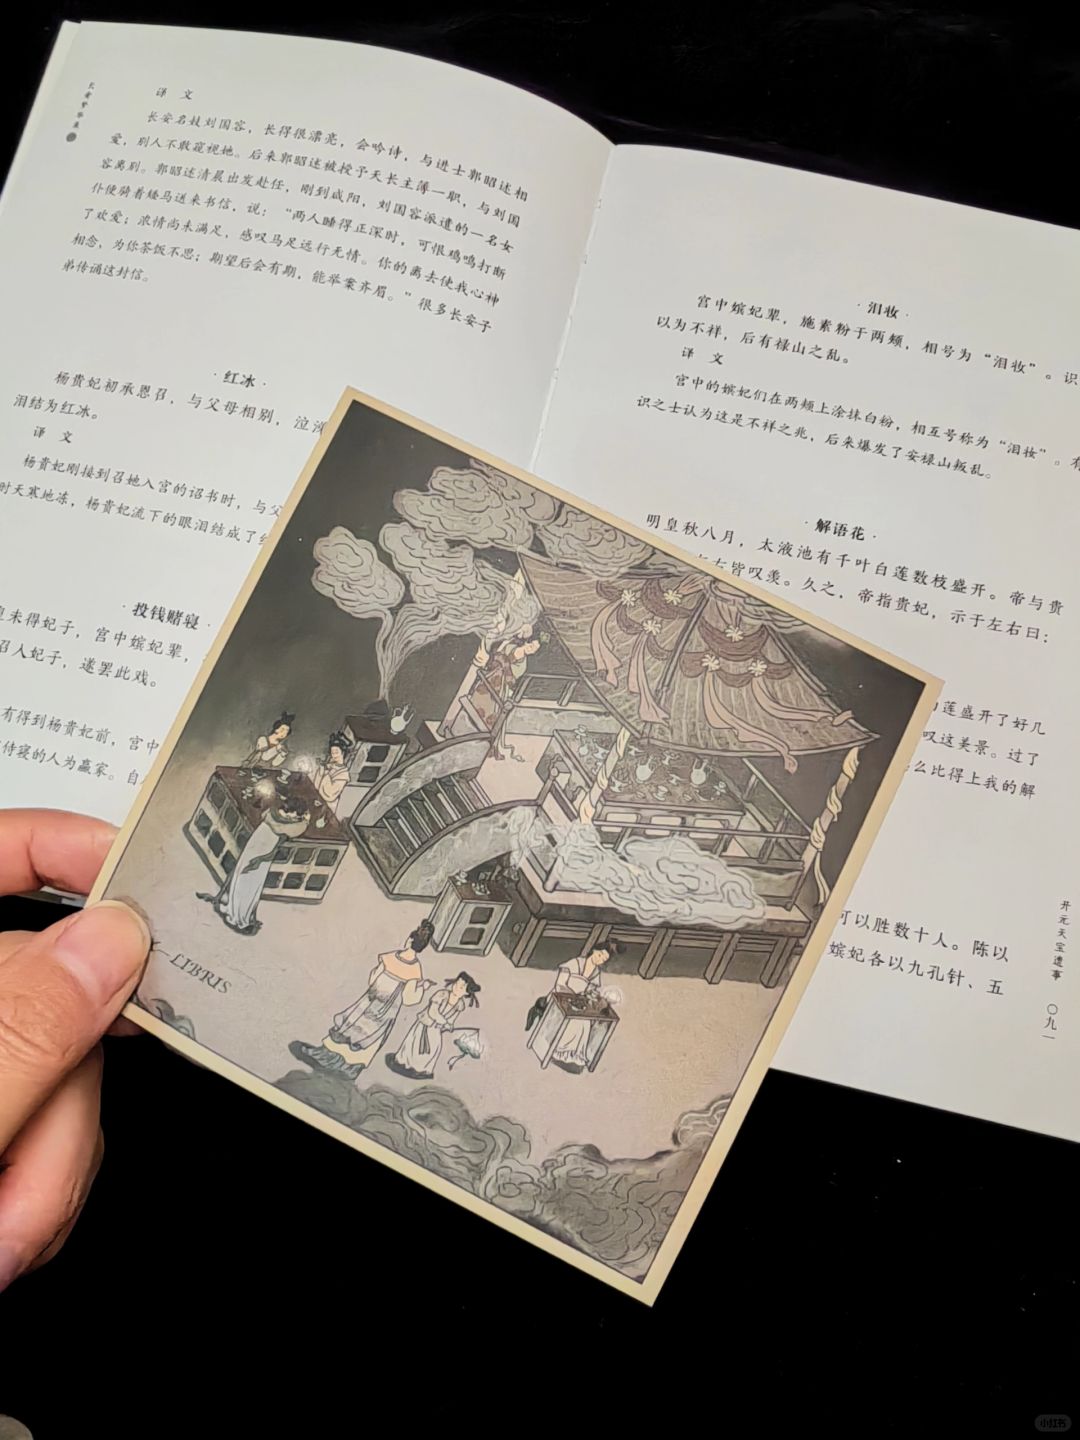 长安梦华录
译 文
长安名妓刘国容，长得很漂亮，会吟诗，与进士郭昭述相
爱，别人不敢窥视她。后来郭昭述被授予天长主薄一职，与刘国
容离别。郭昭述清晨出发赴任，刚到咸阳，刘国容派遣的一名女
仆便骑着矮马送来书信，说：“两人睡得正深时，可恨鸡鸣打断
了欢爱；浓情尚未满足，感叹马足远行无情。你的离去使我心神
相念，为你茶饭不思；期望后会有期，能举案齐眉。”很多长安子
弟传诵这封信。
·红冰·
杨贵妃初承恩召，与父母相别，泣
泪结为红冰。
译 文
杨贵妃刚接到召她入宫的诏书时，与父
时天寒地冻，杨贵妃流下的眼泪结成了
·投钱赌寝·
未得妃子，宫中嫔妃辈，
召人妃子，遂罢此戏。
有得到杨贵妃前，宫中
侍寝的人为赢家。自
·泪妆·
宫中嫔妃辈，施素粉于两颊，相号为“泪妆”。识
以为不祥，后有禄山之乱。
译 文
宫中的嫔妃们在两颊上涂抹白粉，相互号称为“泪妆”。有
识之士认为这是不祥之兆，后来爆发了安禄山叛乱。
·解语花·
明皇秋八月，太液池有千叶白莲数枝盛开。帝与贵
左右皆叹羡。久之，帝指贵妃，示于左右曰：
莲盛开了好几
叹这美景。过了
么比得上我的解
可以胜数十人。陈以
嫔妃各以九孔针、五
开元天宝遗事
〇九一
LIBRIS
小红书